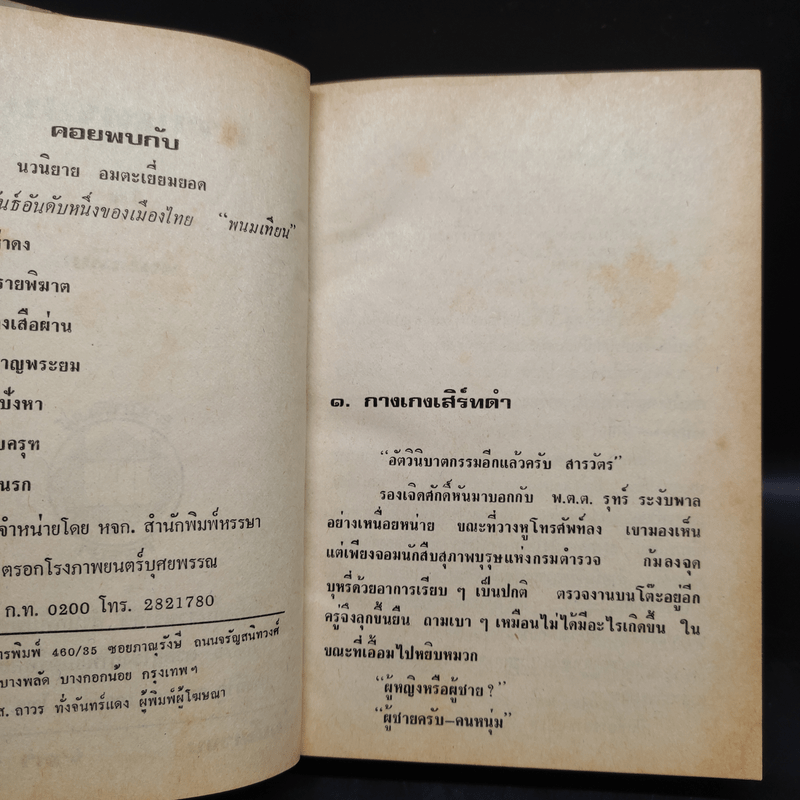 คอยพบกับ
นวนิยาย อมตะเยี่ยมยอด
อันดับหนึ่งของเมืองไทย “พนมเทียน”
พิฆาต
เสือผ่าน
พระยม
ปั่งหา
ครุฑ
นรก
จำหน่ายโดย หจก. สำนักพิมพ์หรรษา
ตรอกโรงภาพยนตร์บุศยพรรณ
ก.ท. 0200 โทร. 2821780
การพิมพ์ 460/35 ซอยภาณุรังษี ถนนจรัญสนิทวงศ์
บางพลัด บางกอกน้อย กรุงเทพฯ
ส. ถาวร ทั่งจันทร์แดง ผู้พิมพ์ผู้โฆษณา
๑. กางเกงเสิร์ทดำ
“อัตวินิบาตกรรมอีกแล้วครับ สารวัตร”
รองเจิดศักดิ์หันมาบอกกับ พ.ต.ต. รุทร์ ระงับพาล
อย่างเหนื่อยหน่าย ขณะที่วางหูโทรศัพท์ลง เขามองเห็น
แต่เพียงจอมนักสืบสุภาพบุรุษแห่งกรมตำรวจ ก้มลงจุด
บุหรี่ด้วยอาการเรียบ ๆ เป็นปกติ ตรวจงานบนโต๊ะอยู่อีก
ครู่จึงลุกขึ้นยืน ถามเบา ๆ เหมือนไม่ได้มีอะไรเกิดขึ้น ใน
ขณะที่เอื้อมไปหยิบหมวก
“ผู้หญิงหรือผู้ชาย ?”
“ผู้ชายครับ–คนหนุ่ม”